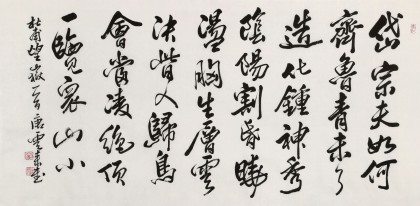 岱宗夫如何
齊魯青未了
造化鍾神秀
陰陽割昏曉
盪胸生層雲
決眥入歸鳥
會當凌絕頂
一覽衆山小
杜甫望嶽一首